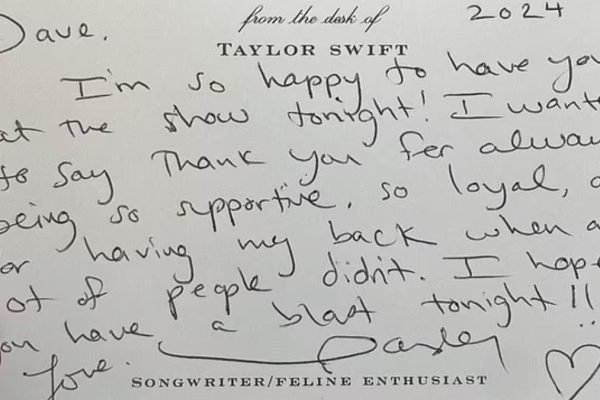 from the desk of
2024
TAYLOR SWIFT
Dave.
I'm so happy to have you
at the show tonight! I want
to say thank you for alway
being so supportive, so loyal, a
or having my back when a
ot of people didn't. I hop
ou have a blast tonight!!
Love.
SONGWRITER/FELINE ENTHUSIAST